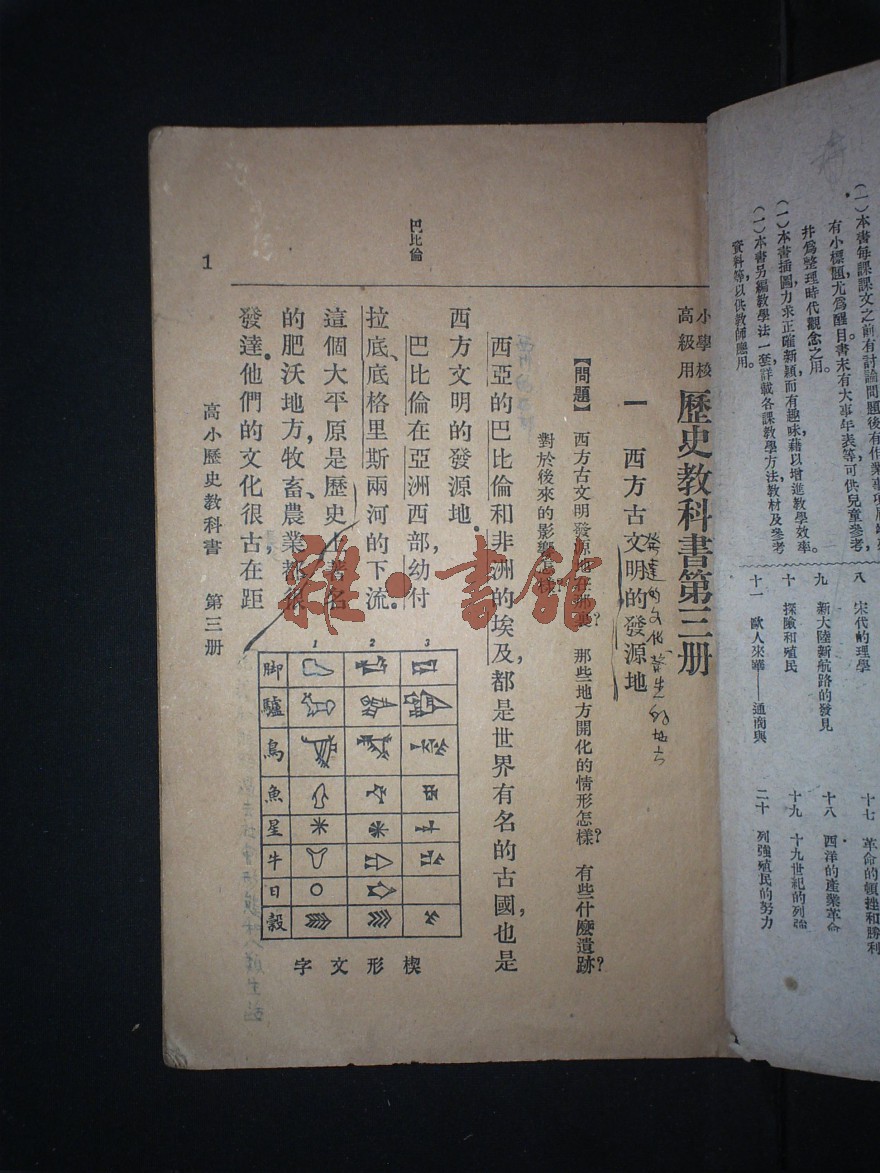 (一)本書每課課文之前有討論問題後有作業事項
有小標題尤爲醒目書末有大事年表等可供兒童參考,
井爲整理時代觀念之用。
(一)本書插圖力求正確新穎而有趣味藉以增進教學效率。
(一)本書另編教學法一套詳載各課教學方法教材及參考
資料等以供教師應用。
八 宋代的理學
九 新大陸新航路的發見
十 探險和殖民
十一 歐人來華——通商與
十七 革命的頓挫和勝利
十八 西洋的產業革命
十九 十九世紀的列強
二十 列強殖民的努力
小學校高級用 歷史教科書第三册
一 西方古文明的發源地
發達的文化發生的地方
【問題】 西方古文明發源地在那裏? 那些地方開化的情形怎樣? 有些什麼遺跡?
對於後來的影響怎樣?
西亞的巴比倫和非洲的埃及,都是世界有名的古國,也是
西方文明的發源地。
巴比倫
巴比倫在亞洲西部,幼付
拉底、底格里斯兩河的下流
這個大平原是歷史上著名
的肥沃地方,牧畜、農業都很
發達。他們的文化很古,在距
1 2 3
脚
驢
鳥
魚
星
牛
日
穀
字文形楔
高小歷史教科書 第三册
1
雜·書館